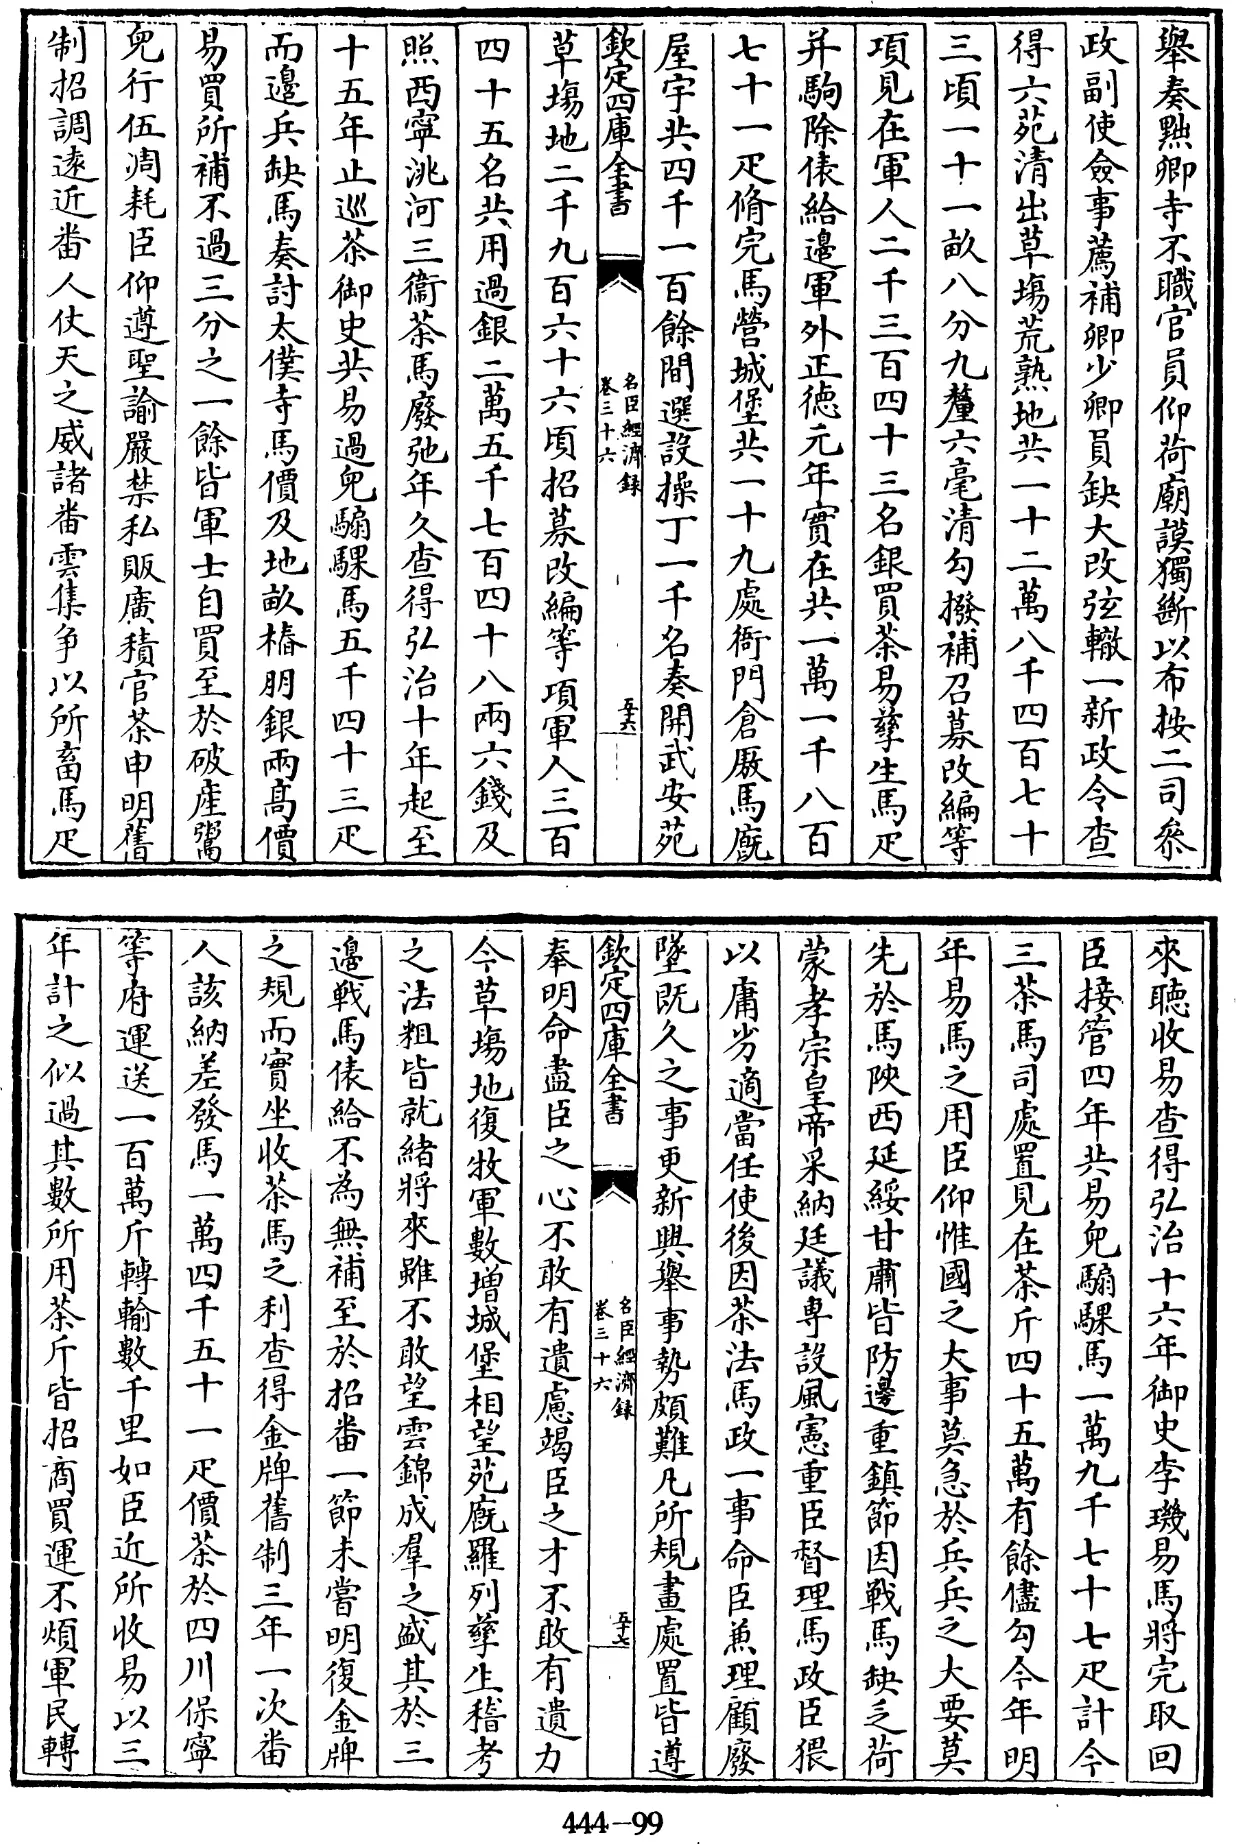 舉奏黜卿寺不職官員仰荷廟謨獨斷以布按二司參
政副使僉事薦補卿少卿員缺大改弦轍一新政令查
得六苑清出草塲荒熟地共一十二萬八千四百七十
三頃一十一畝八分九釐六毫清勾撥補召募改編等
項見在軍人二千三百四十三名銀買茶易孳生馬疋
并駒除俵給邊軍外正徳元年實在共一萬一千八百
七十一疋脩完馬營城堡共一十九處衙門倉厫馬廐
屋宇共四千一百餘間選設操丁一千名奏開武安苑
欽定四庫全書
名臣經濟録
卷三十六
五十六
草塲地二千九百六十六頃招募改編等項軍人三百
四十五名共用過銀二萬五千七百四十八兩六錢及
照西寧洮河三衞茶馬廢弛年久查得弘治十年起至
十五年止巡茶御史共易過兒騸騍馬五千四十三疋
而邊兵缺馬奏討太僕寺馬價及地畝樁朋銀兩髙價
易買所補不過三分之一餘皆軍士自買至於破産鬻
兒行伍凋耗臣仰遵聖諭嚴禁私販廣積官茶申明舊
制招調逺近畨人仗天之威諸畨雲集争以所畜馬疋
來聽收易查得弘治十六年御史李璣易馬將完取回
臣接管四年共易兒騸騍馬一萬九千七十七疋計今
三茶馬司處置見在茶斤四十五萬有餘儘勾今年明
年易馬之用臣仰惟國之大事莫急於兵兵之大要莫
先於馬陜西延綏甘肅皆防邊重鎮節因戰馬缺乏荷
蒙孝宗皇帝采納廷議専設風憲重臣督理馬政臣猥
以庸劣適當任使後因茶法馬政一事命臣兼理顧廢
墜既久之事更新興舉事勢頗難凡所規畫處置皆遵
欽定四庫全書
名臣經濟録
卷三十六
五十七
奉明命盡臣之心不敢有遺慮竭臣之才不敢有遺力
今草塲地復牧軍數増城堡相望苑廐羅列孳生稽考
之法粗皆就緒將來雖不敢望雲錦成羣之盛其於三
邊戰馬俵給不為無補至於招畨一節未嘗明復金牌
之規而實坐收茶馬之利查得金牌舊制三年一次畨
人該納差發馬一萬四千五十一疋價茶於四川保寧
等府運送一百萬斤轉輸數千里如臣近所收易以三
年計之似過其數所用茶斤皆招商買運不煩軍民轉
444-99